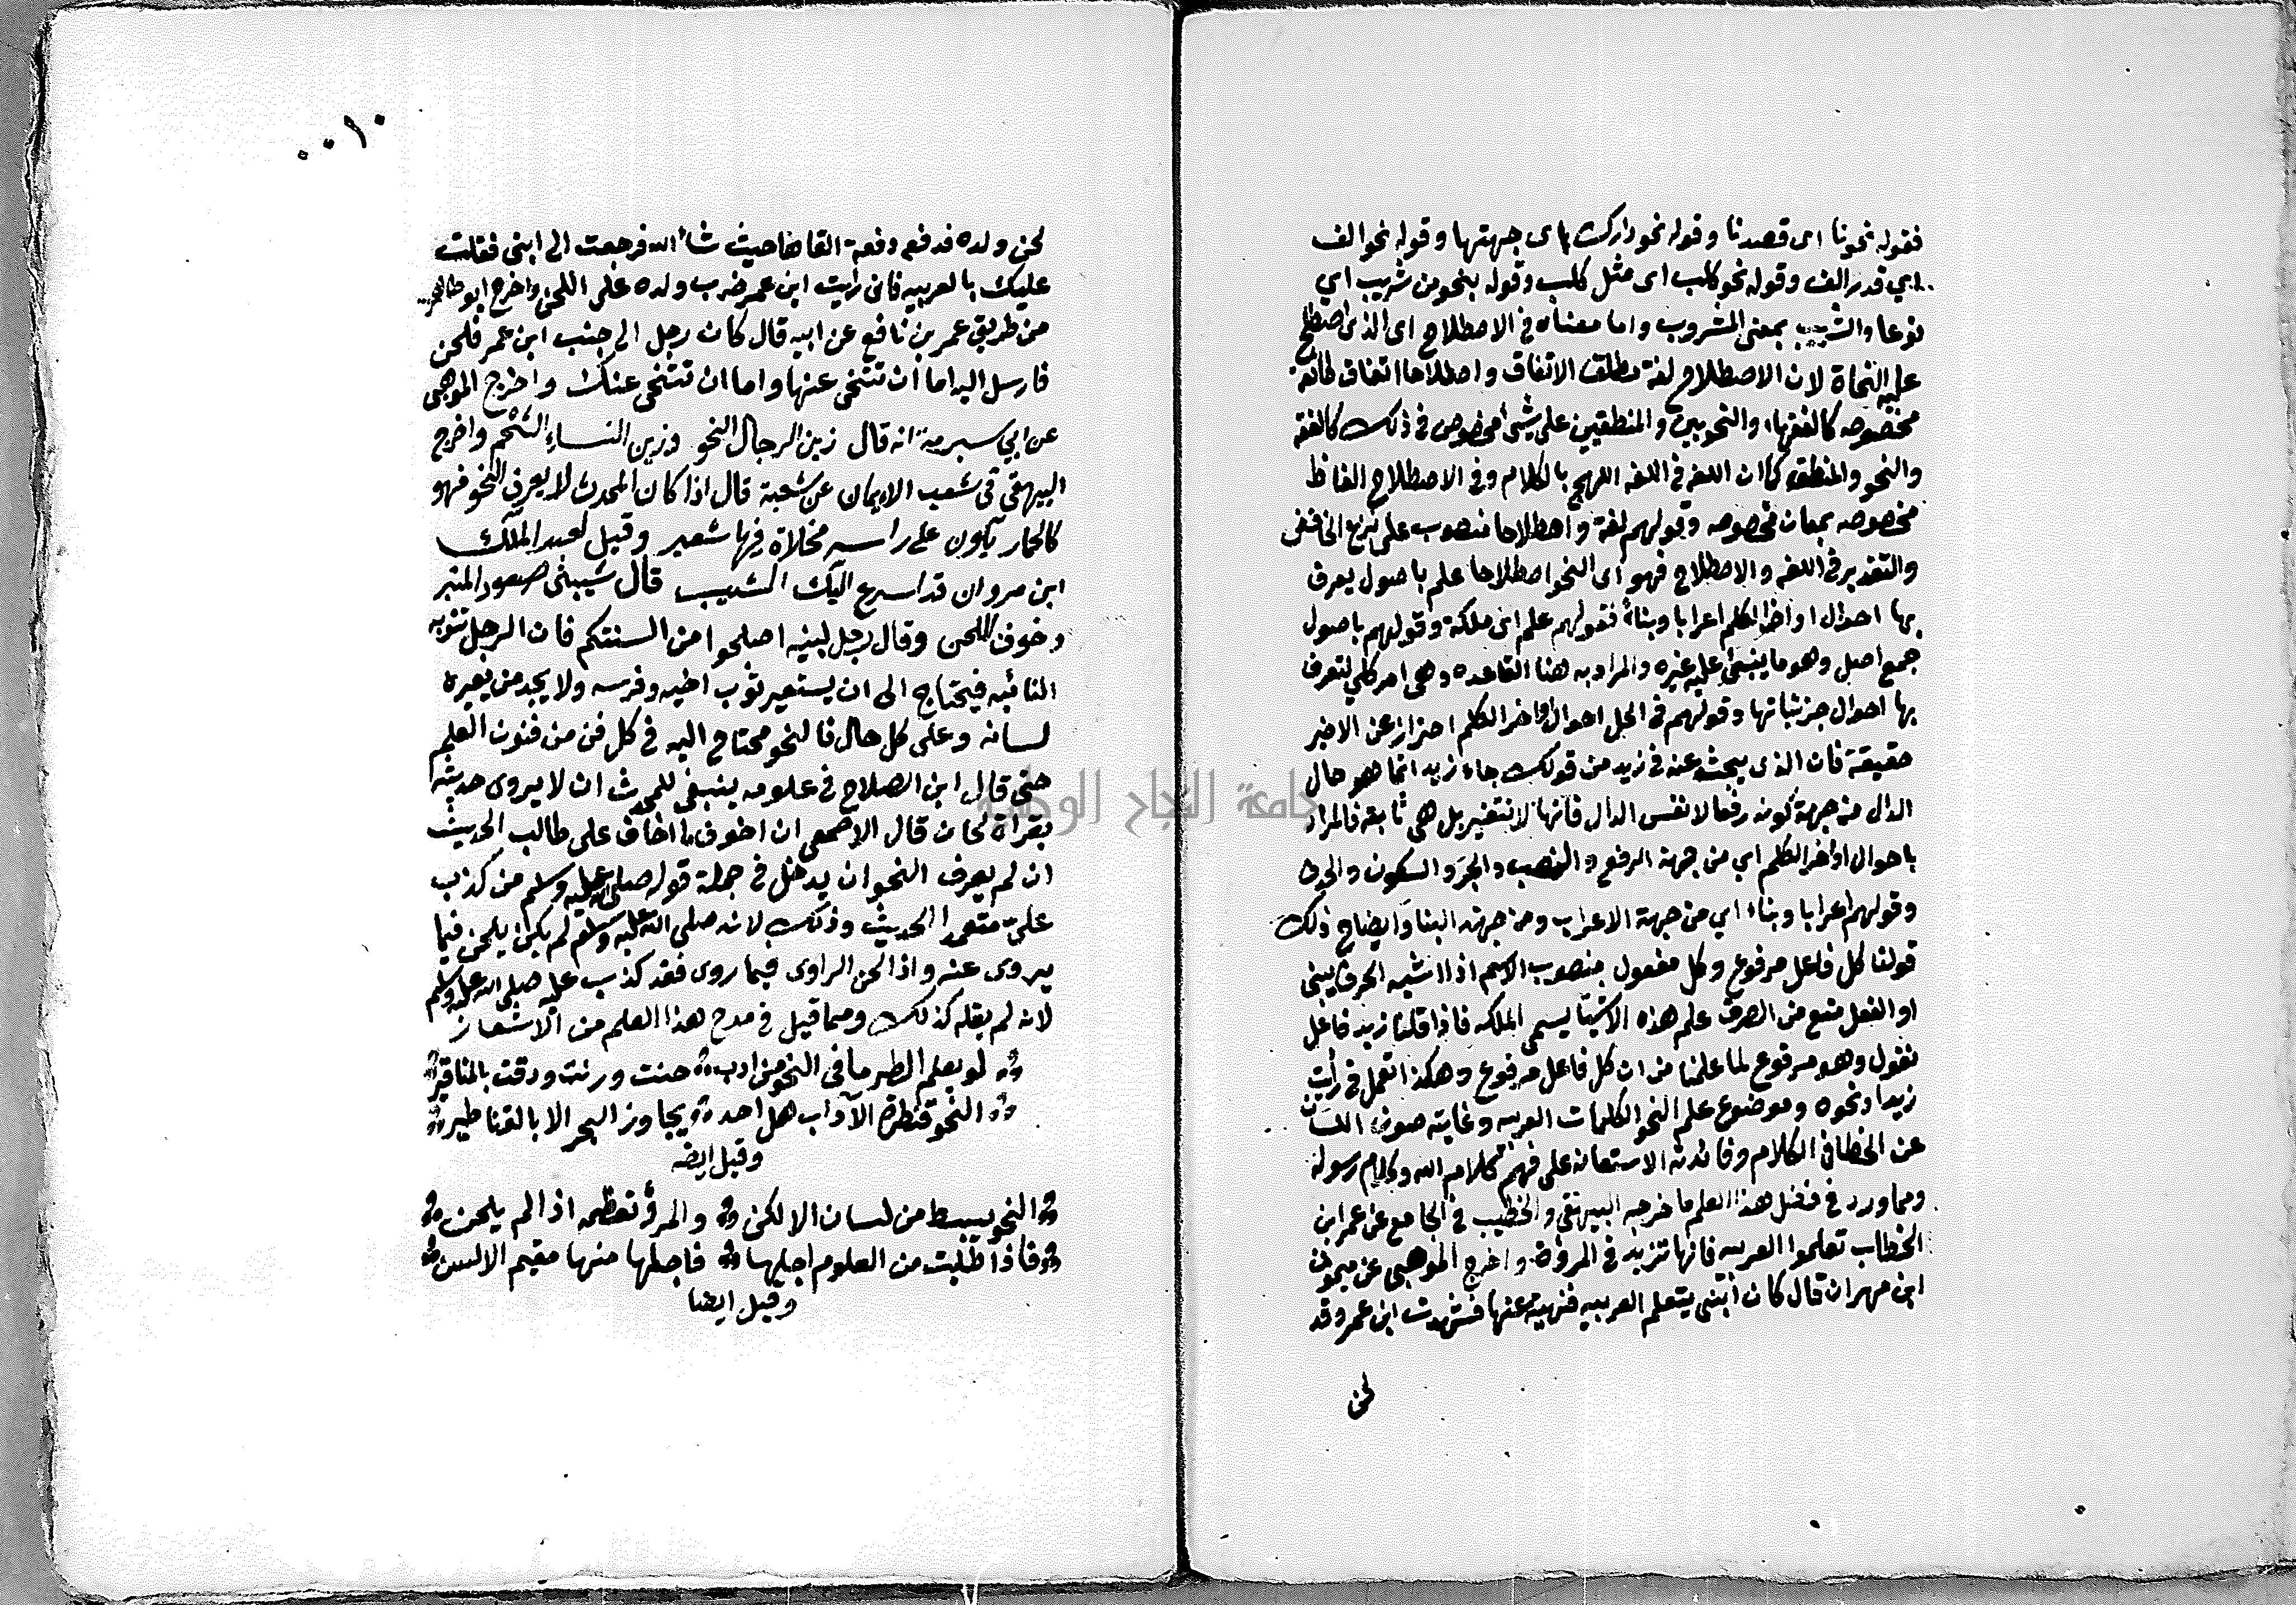 فقوله نحونا اى قصدنا وقوله نحو دارك اى جهتها وقوله نحو الف
اي قدر الف وقوله نحو كلب اى مثل كلب وقوله بنحو من شريب اي
نوعا والشريب بمعنى المشروب واما معناه في الاصطلاح اى الذى اصطلح
عليه النحاة لان الاصطلاح لغة مطلق الاتفاق واصطلاحا اتفاق طائفة
مخصوصه كالفقهاء والنحويين والمنطقيين على شئ مخصوص فى ذلك كالفقه
والنحو والمنطق كما ان اللغه فى اللغه اللهج بالكلام وفى الاصطلاح الفاظ
مخصوصه بمعان مخصوصه وقولهم لغة واصطلاحا منصوب على نزع الخافض
والتقدير فى اللغه والاصطلاح فهو اى النحو اصطلاحا علم باصول يعرف
بها احوال اواخر الكلم اعرابا وبناء فقولهم علم اى ملكة وقولهم باصول
جمع اصل وهو ما ينبنى عليه غيره والمراد به هنا القاعده وهى امر كلي لتعرف
بها احوال جزئياتها وقولهم فى الحل احوال اواخر الكلم احترازعن الاخير
حقيقة فان الذى يبحث عنه فى زيد من قولك جاء زيد انما هو حال
الدال من جهة كونه رفعا لا نفس الدال فانها لا تتغير بل هى ثابته فالمراد
باحوال اواخر الكلم اي من جهة الرفع والنصب والجر والسكون والحذف
وقولهم اعرابا وبناء اي من جهة الاعراب ومن جهة البنا وايضاح ذلك
قولنا كل فاعل مرفوع وكل مفعول منصوب الاسم اذا اشبه الحرف يبنى
او الفعل منع من الصرف علم هذه الاشيا يسمى الملكه فاذا قلنا زيد فاعل
نقول وهو مرفوع لما علمنا من ان كل فاعل مرفوع وهكذا تعمل فى رأيت
زيدا ونحوه وموضوع علم النحو الكلمات العربيه وغايته صون اللسان
عن الخطا فى الكلام وفائدته الاستعانه على فهم كلام الله وكلام رسوله
ومما ورد فى فضل هذا العلم ما خرجه البيهقى والخطيب فى الجامع عن عمر ابن
الخطاب تعلموا العربيه فانها تزيد فى المروة واخرج الموهبى عن ميمون
ابن مهران قال كان ابنى يتعلم العربيه فنهيته عنها فشهدت ابن عمر وقد
لحن
٠٠١٠
لحن ولده فدفع دفعة القاها حيث شاء الله فرجعت الى ابنى فقلت
عليك بالعربيه فانى رايت ابن عمر ضرب ولده على اللحن واخرج ابو طاهر
من طريق عمر بن نافع عن ابيه قال كان رجل الى جنب ابن عمر فلحن
فارسل اليه اما ان تتنحى عنها واما ان نتنحى عنك واخرج الموهبى
عن ابي سبرمة انه قال زين الرجال النحو وزين النساء الشحم واخرج
البيهقى فى شعب الايمان عن شعبة قال اذا كان المحدث لا يعرف النحو فهو
كالحمار يكون على راسه مخلاة فيها شعير وقيل لعبد الملك
ابن مروان قد اسرع اليك الشيب قال شيبنى صعود المنبر
وخوف اللحن وقال رجل لبنيه اصلحوا من السنتكم فان الرجل تنوبه
النائبه فيحتاج الى ان يستعير ثوب اخيه وفرسه ولا يجد من يعيره
لسانه وعلى كل حال فالنحو محتاج اليه فى كل فن من فنون العلم
حتى قال ابن الصلاح فى علومه ينبغى للمحدث ان لا يروى حديثه
بقراة لحان قال الاصمعى ان اخوف ما اخاف على طالب الحديث
ان لم يعرف النحو ان يدخل فى جملة قوله صلى الله عليه وسلم من كذب
على متعمدا الحديث وذلك لانه صلى الله عليه وسلم لم يكن يلحن فيما
يروى عنه واذا لحن الراوى فيما روى فقد كذب عليه صلى الله عليه وسلم
لانه لم يقله كذلك ومما قيل فى مدح هذا العلم من الاشعار
لو يعلم الطير ما فى النحو من ادب حنت ورنت ودقت بالمناقير
النحو قنطرة الآداب هل احد يجاوز البحر الا بالقناطير
وقيل ايضه
النحو يبسط من لسان الالكن والمرؤ تعظمه اذا لم يلحن
فاذا طلبت من العلوم اجلها فاجلها منها مقيم الالسن
وقيل ايضا
جامعة النجاح الوطنية